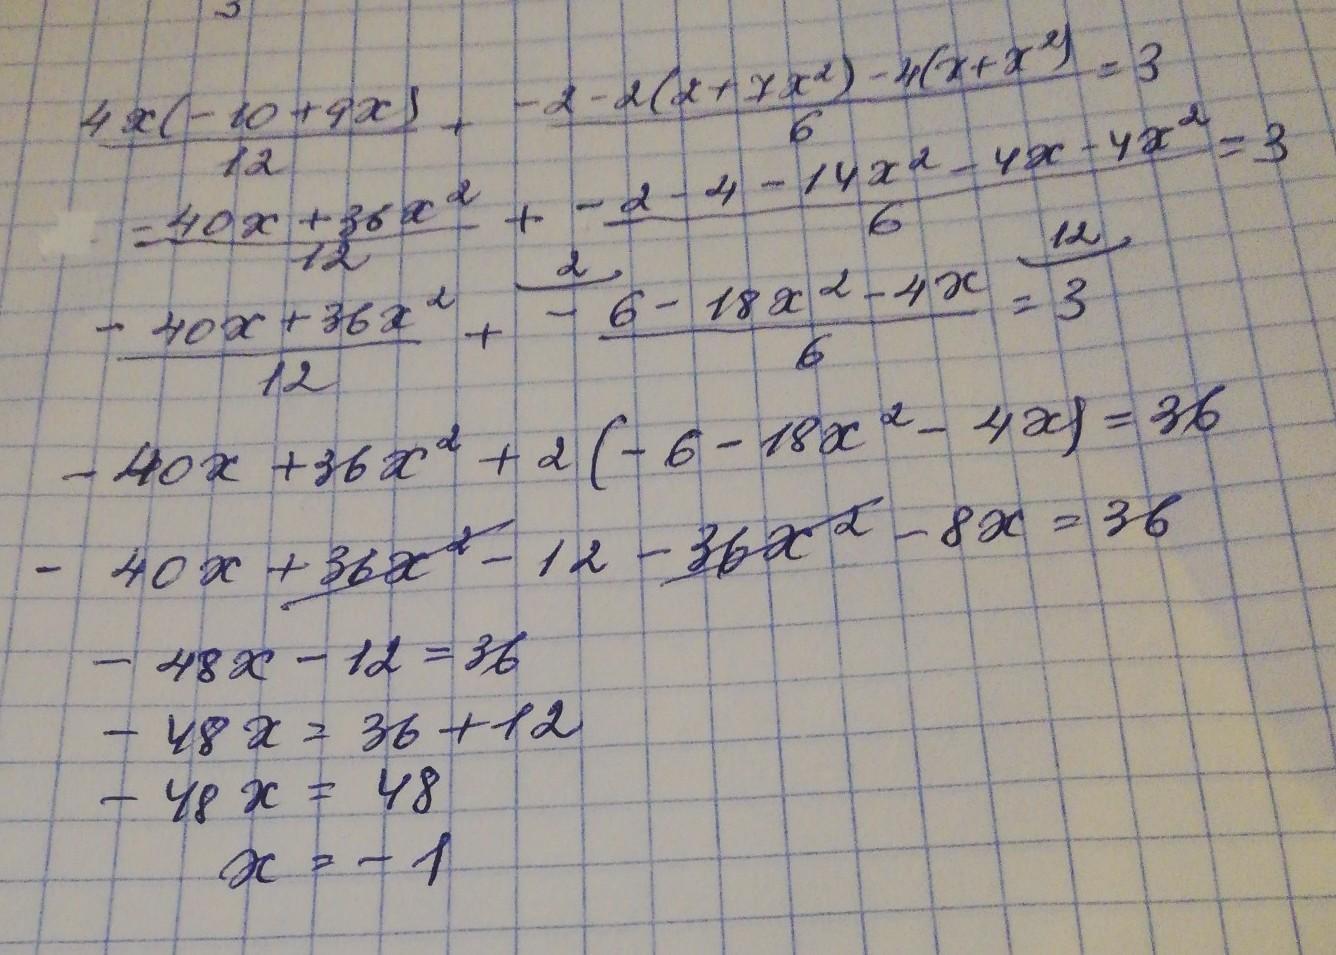 4x(-10+9x)/12 + -2-2(2+7x²)-4(x+x²)/6 = 3
= -40x+36x²/12 + -2-4-14x²-4x-4x²/6 = 3
-40x+36x²/12 + 2 -6-18x²-4x/6 = 3 12
-40x+36x²+2(-6-18x²-4x)=36
-40x+36x²-12-36x²-8x=36
-48x-12=36
-48x=36+12
-48x=48
x=-1